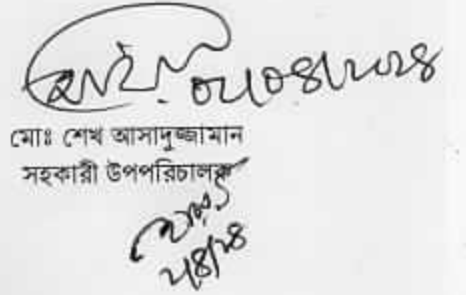 ০২/০৪/২০২৪
মোঃ শেখ আসাদুজ্জামান
সহকারী উপপরিচালক
২/৪/২৪